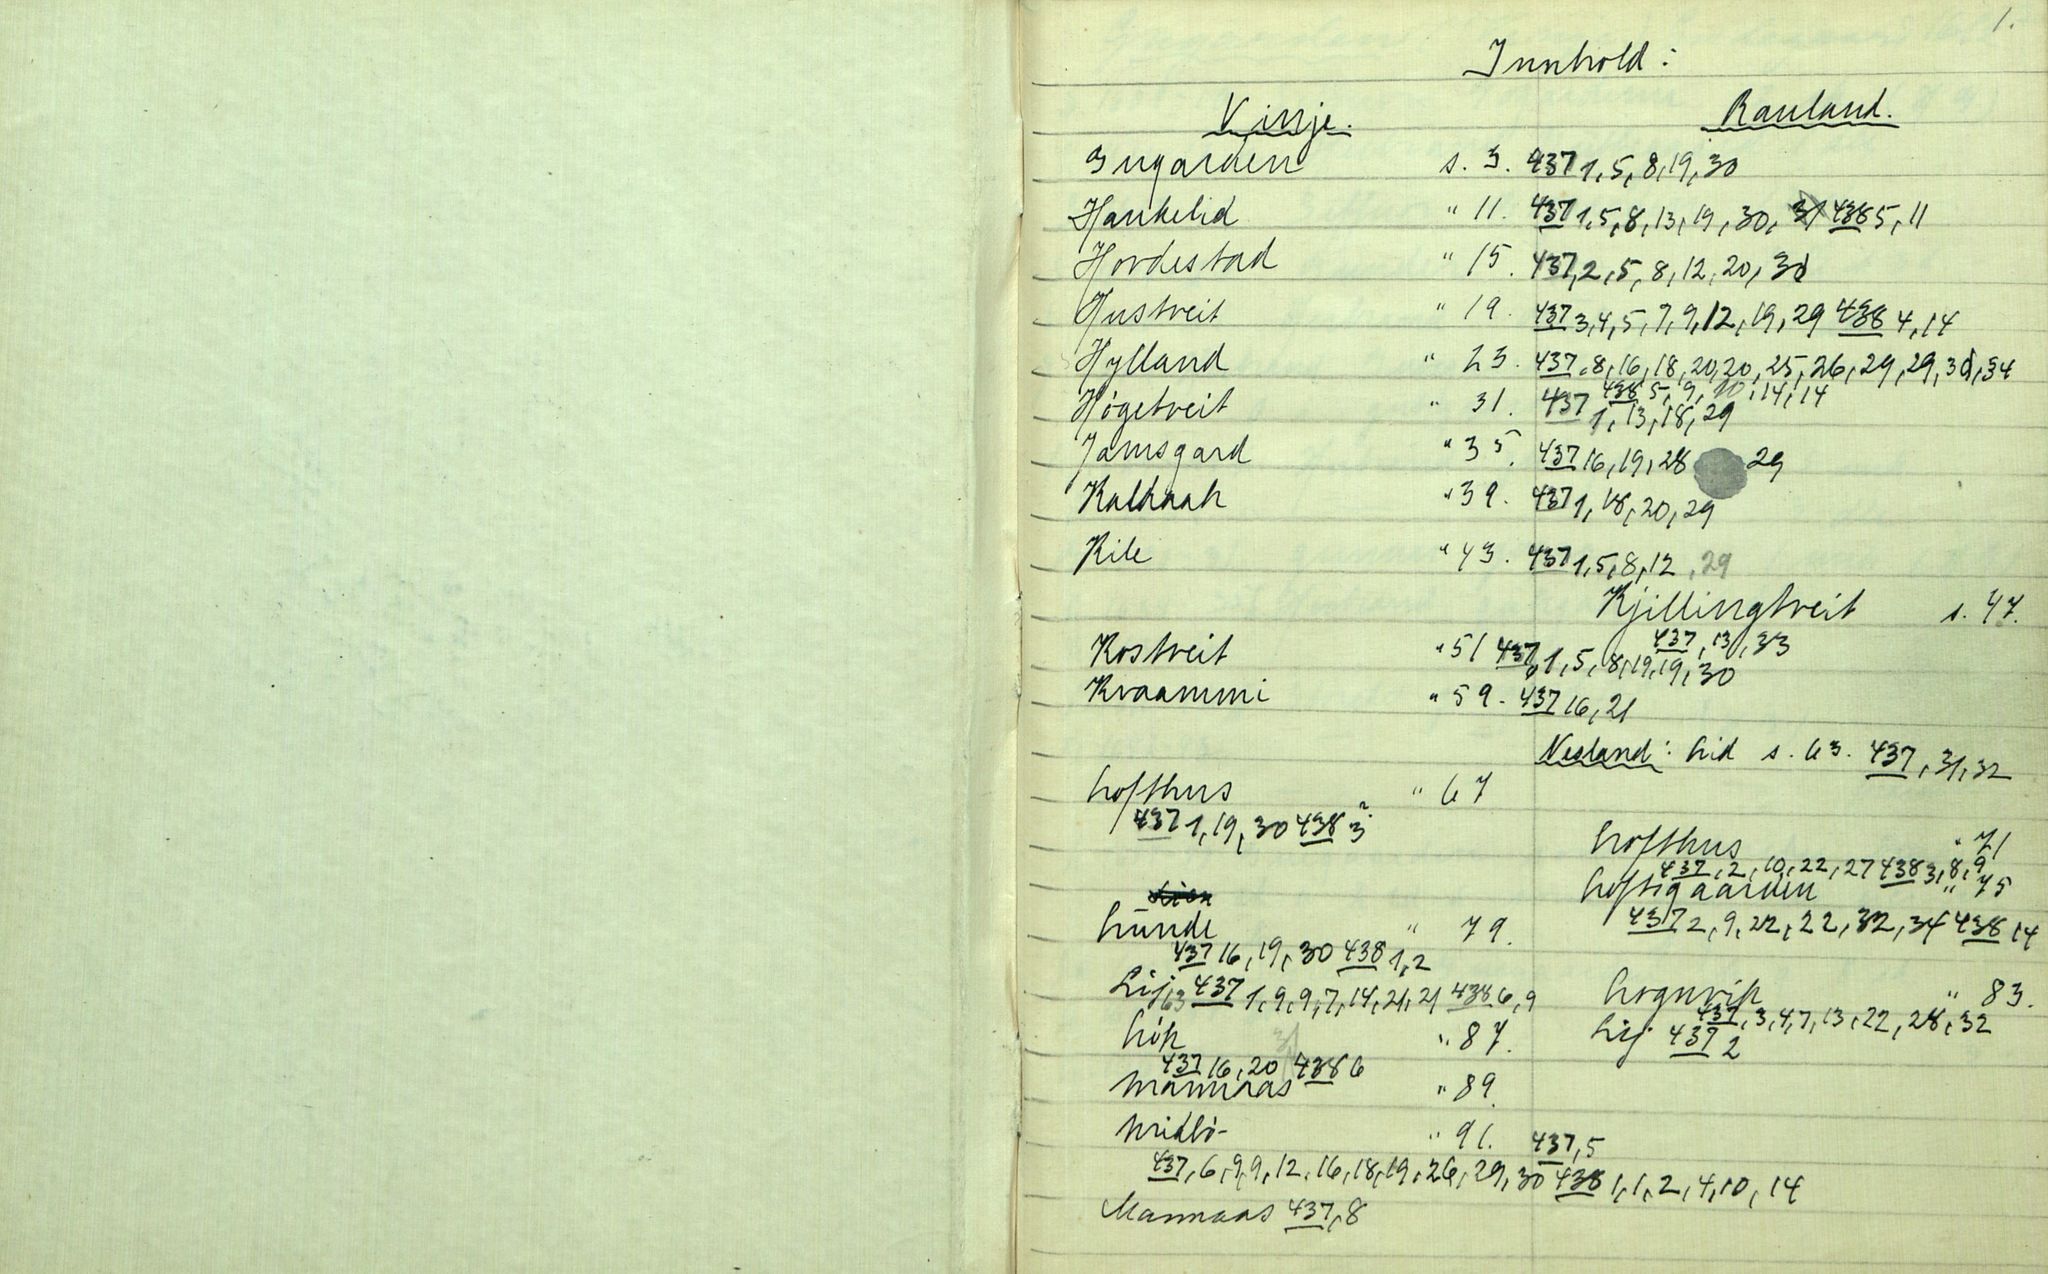 1.
Innhold:
Vinje. Rauland.
Ingarden s. 3. 437 1, 5, 8, 19, 30
Haukelid " 11. 437 1, 5, 8, 13, 19, 30, 31 438 5, 11
Hovdestad " 15. 437, 2, 5, 8, 12, 20, 30
Hustveit " 19. 437 3, 4, 5, 7, 9, 12, 19, 29 438 4, 14
Hylland " 23. 437, 8, 16, 18, 20, 20, 25, 26, 29, 29, 30, 34
438 5, 9, 10, 14, 14
Högetveit " 31. 437 1, 13, 18, 29
Jamsgard " 35. 437 16, 19, 28 29
Kaldaak " 39. 437 1, 18, 20, 29
Kile " 43. 437 1, 5, 8, 12, 29
Kjillingtveit s. 47.
437, 13, 33
Kostveit " 51 437, 1, 5, 8, 19, 19, 30
Kvaammi " 59. 437 16, 21
Nesland: Lid s. 63. 437, 31, 32
Lofthus " 67
437 1, 19, 30 438 3?
Lofthus " 71
437, 2, 10, 22, 27 438 3, 8, 9
Loftsgaarden " 75
437 2, 9, 22, 22, 32, 34 438 14
Lunde " 79.
437 16, 19, 30 438 1, 2
Lognvik " 83.
437, 3, 4, 7, 13, 22, 28, 32
Lij 63 437 1, 9, 9, 7, 14, 21, 21 438 6, 9
Lij 437 2
Lök " 87.
437 16, 20 438 6
Mannaas " 89.
Midbö " 91. 437, 5
437, 6, 9, 9, 12, 16, 18, 19, 26, 29, 30 438 1, 1, 2, 4, 10, 14
Mannaas 437, 8